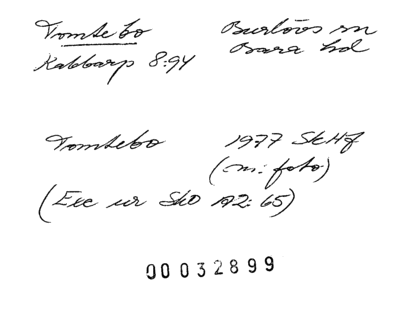 Tomtebo Burlövs sn
Kabbarp 8:94 Bara hd
Tomtebo 1977 SkHf
(m: foto)
(Exc ur SkO A2: 65)
00032899